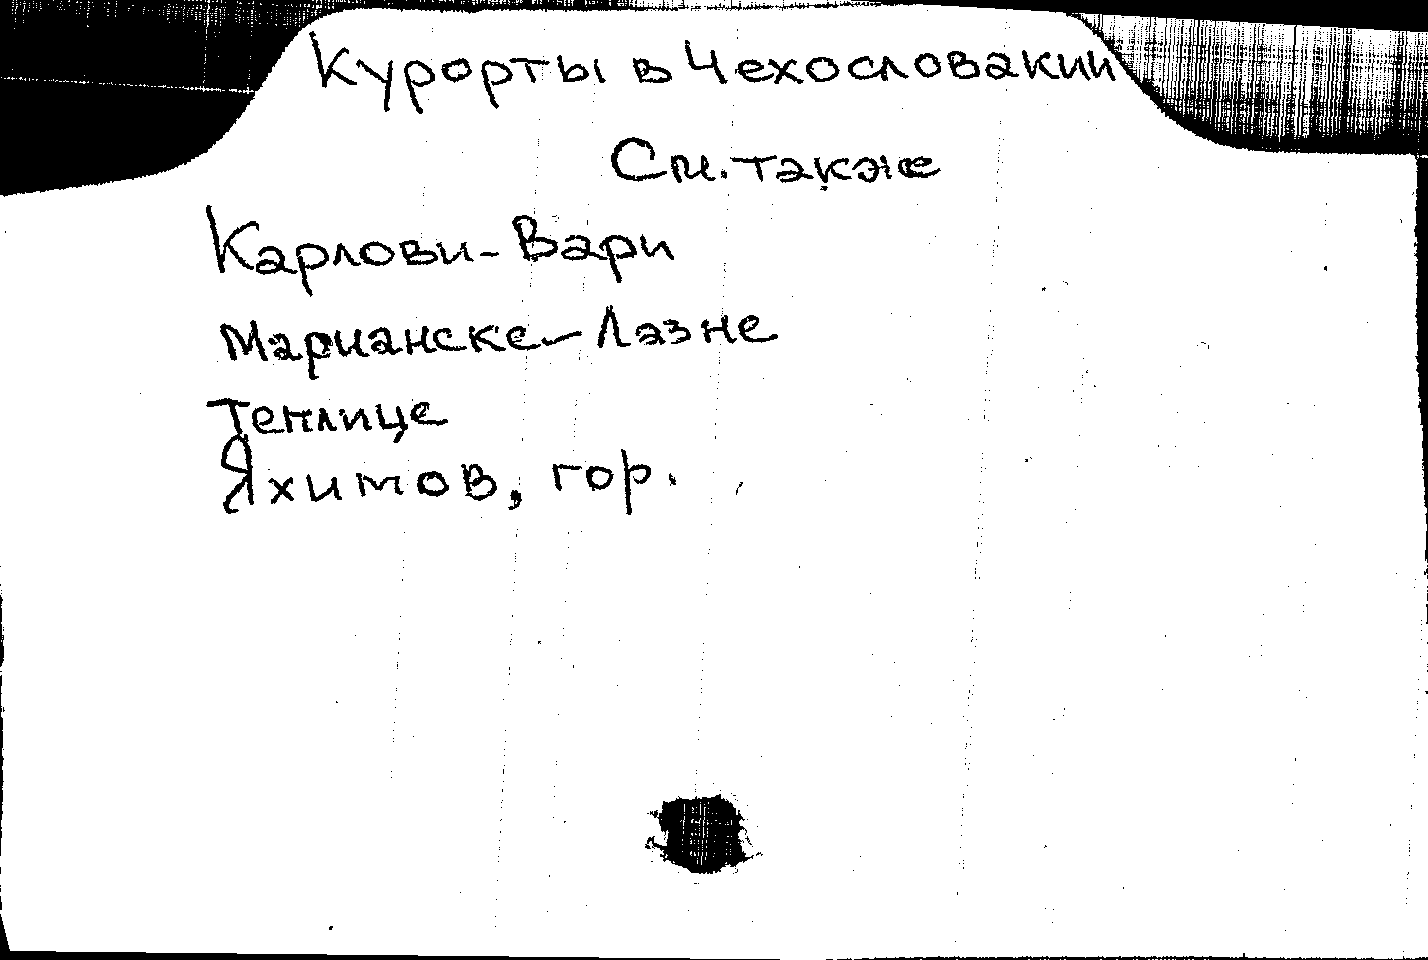 Курорты в Чехословакии
См. также
Карлови-Вари
Марианске-Лазне
Теплице
Яхимов, гор.